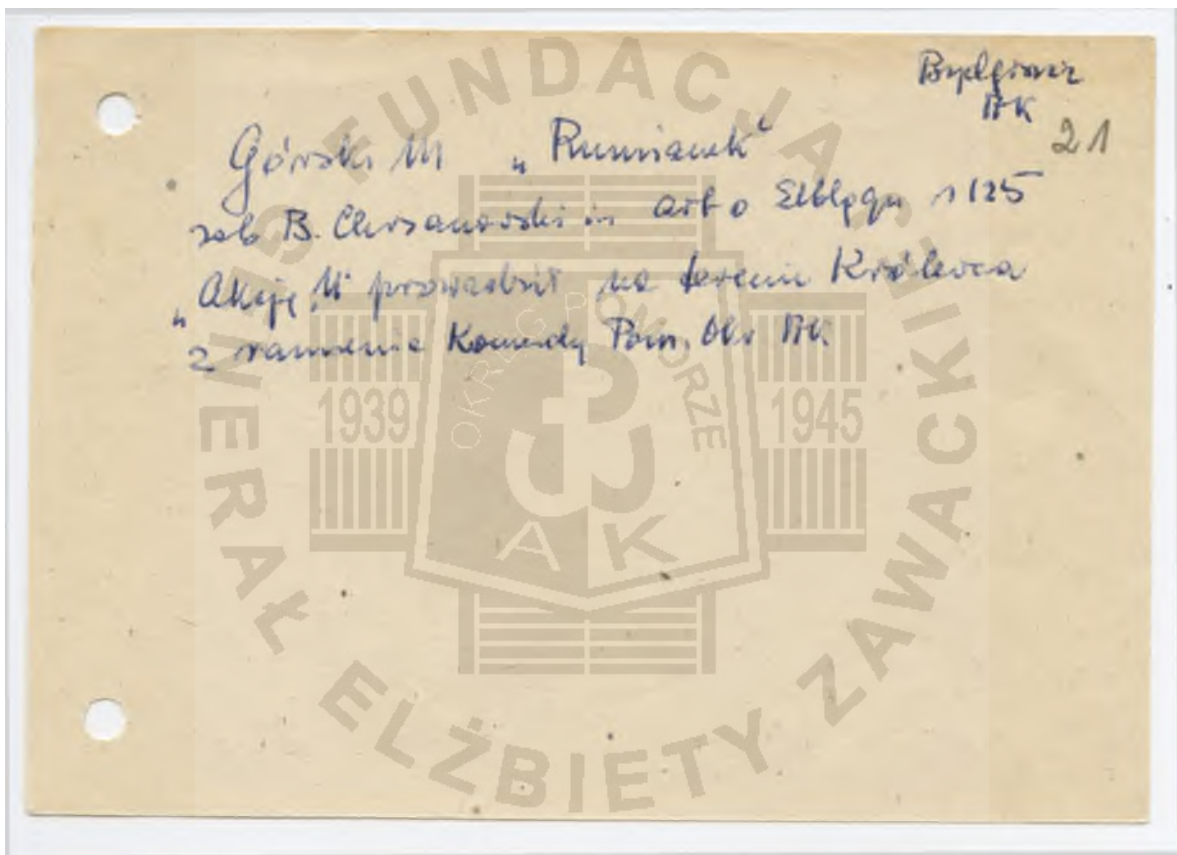 Bydgoszcz
AK
21
Górski M „Rumianek"
zob B. Chrzanowski in art o Elblągu s 125
„Akcję M" prowadził na terenie Królewca
z ramienia Komendy Pom. Okr AK.
FUNDACJA GENERAŁ ELŻBIETY ZAWACKIEJ
OKRĘG POMORZE
1939
1945
AK